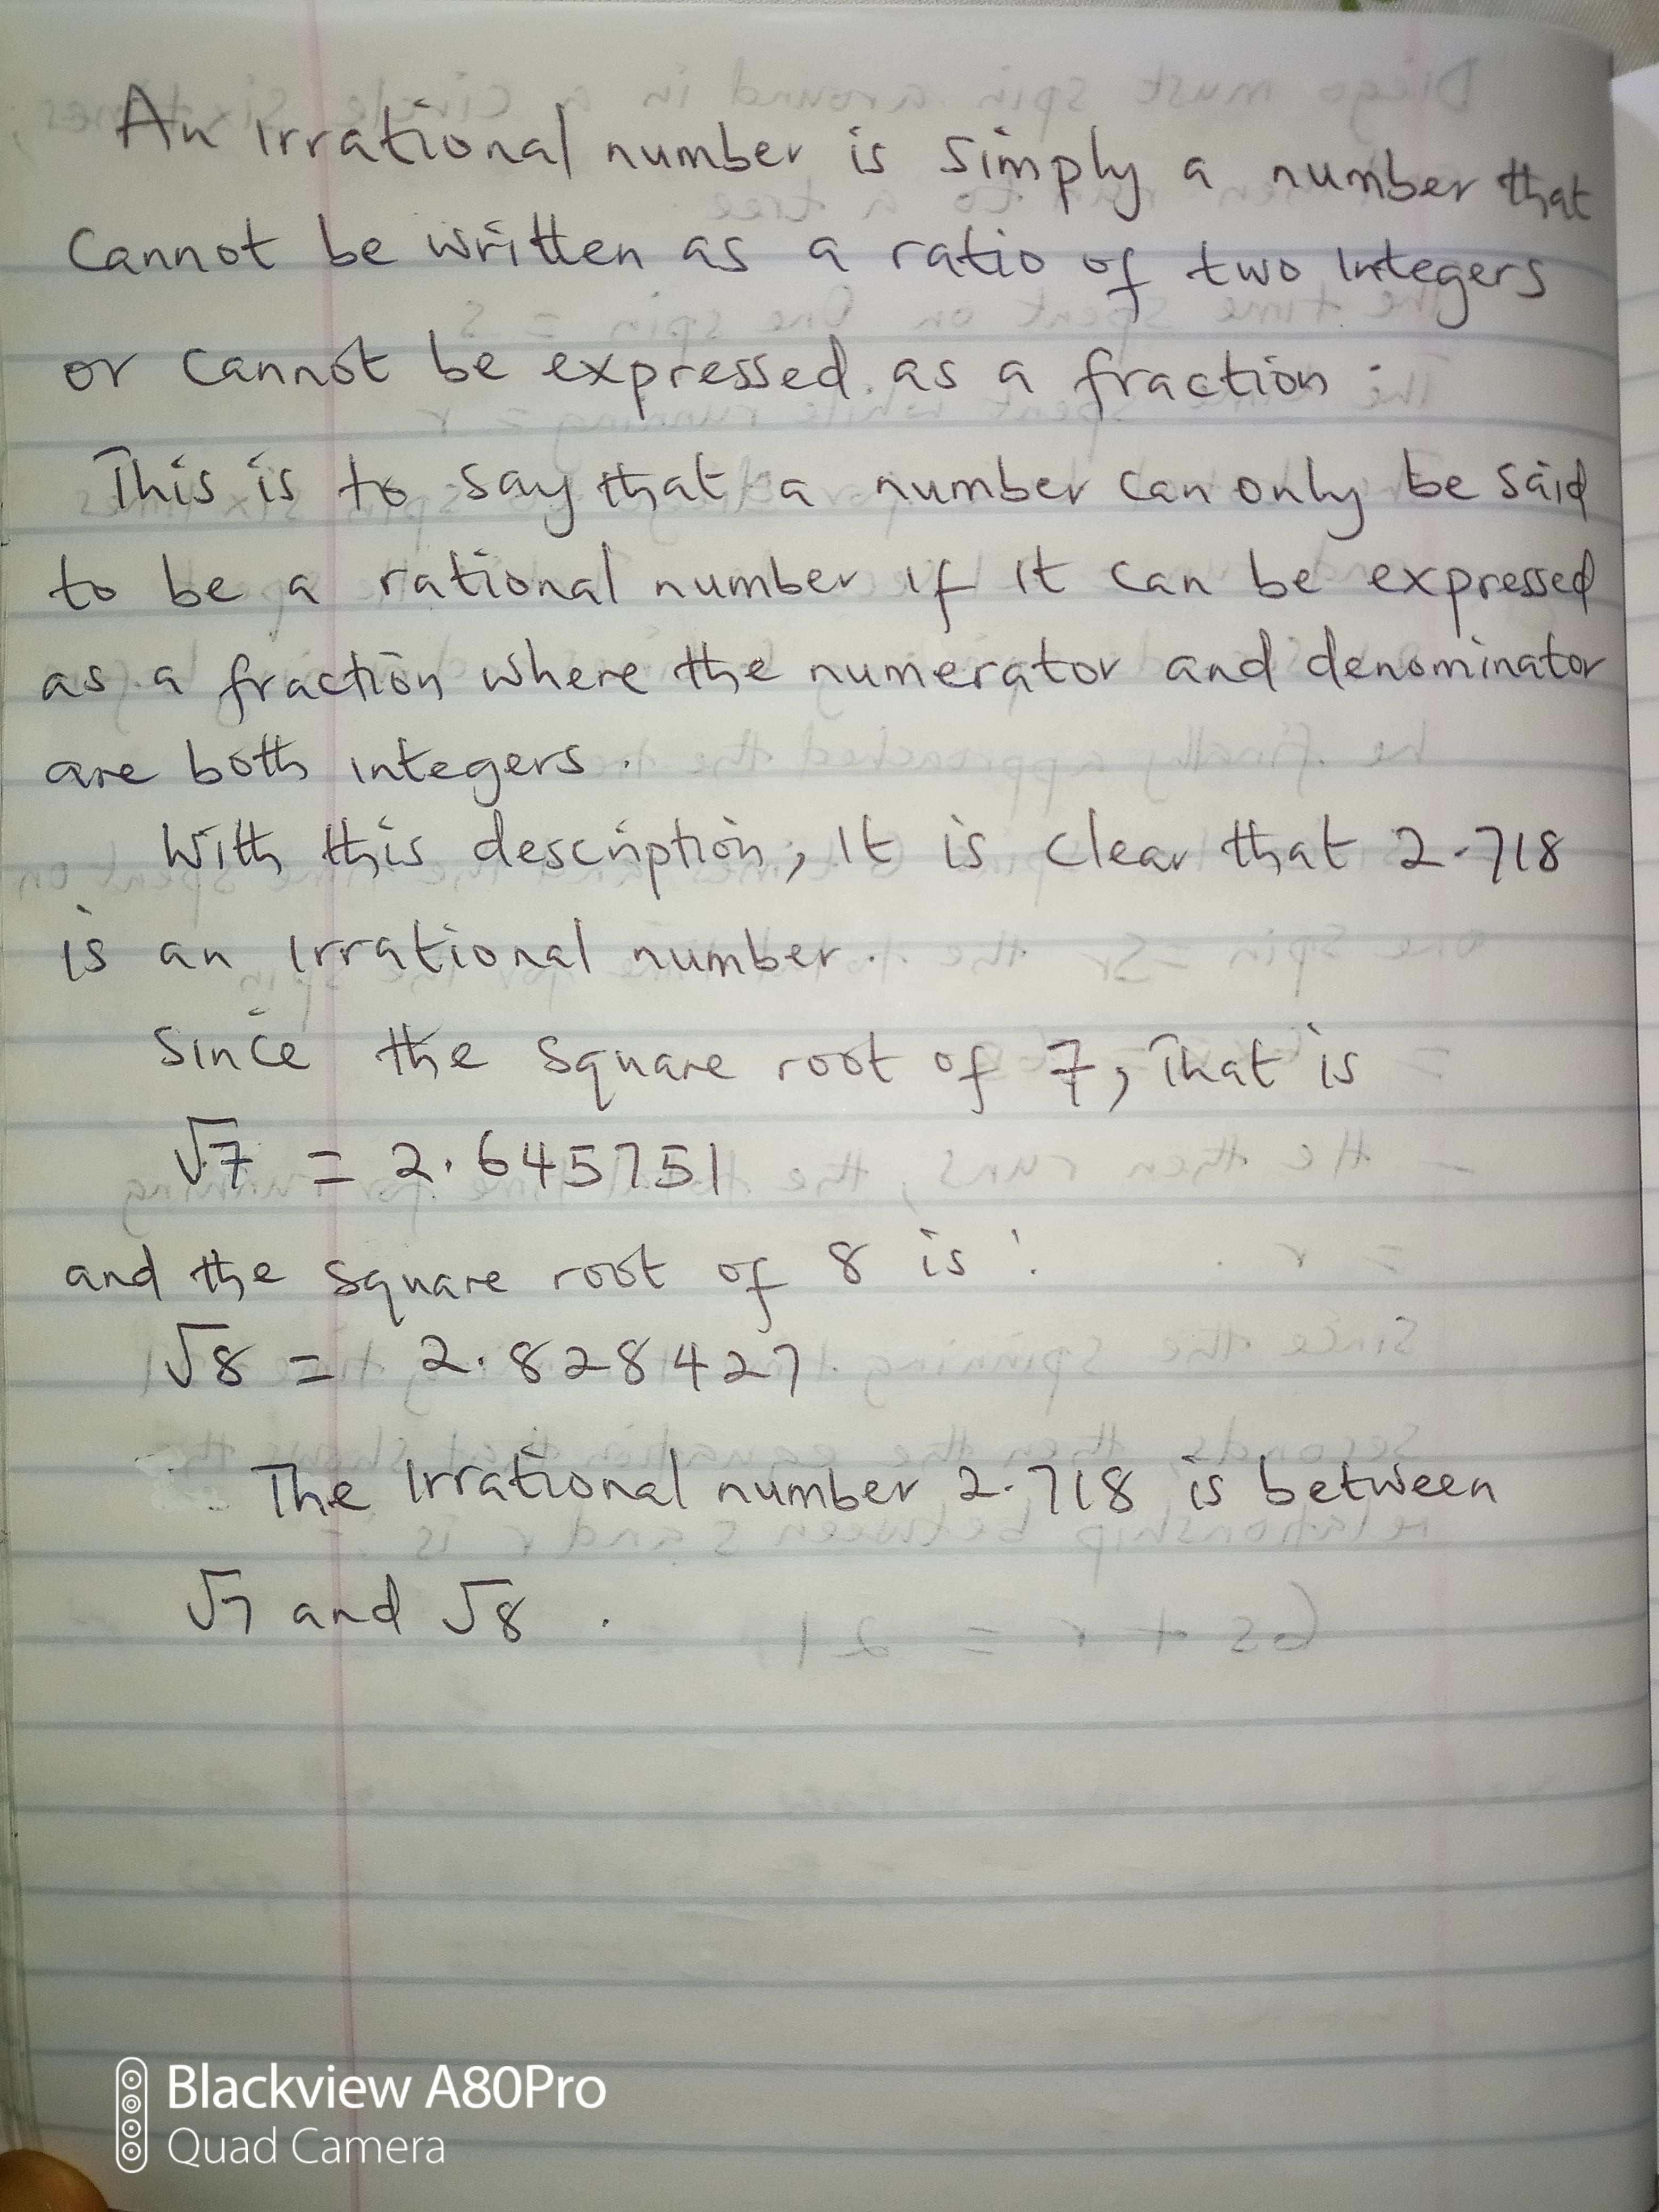 An irrational number is simply a number that
cannot be written as a ratio of two integers
or cannot be expressed as a fraction.
This is to say that a number can only be said
to be a rational number if it can be expressed
as a fraction where the numerator and denominator
are both integers.
With this description, it is clear that 2.718
is an irrational number.
Since the square root of 7, that is
√7 = 2.645751
and the square root of 8 is:
√8 = 2.828427
The irrational number 2.718 is between
√7 and √8.
Blackview A80Pro
Quad Camera